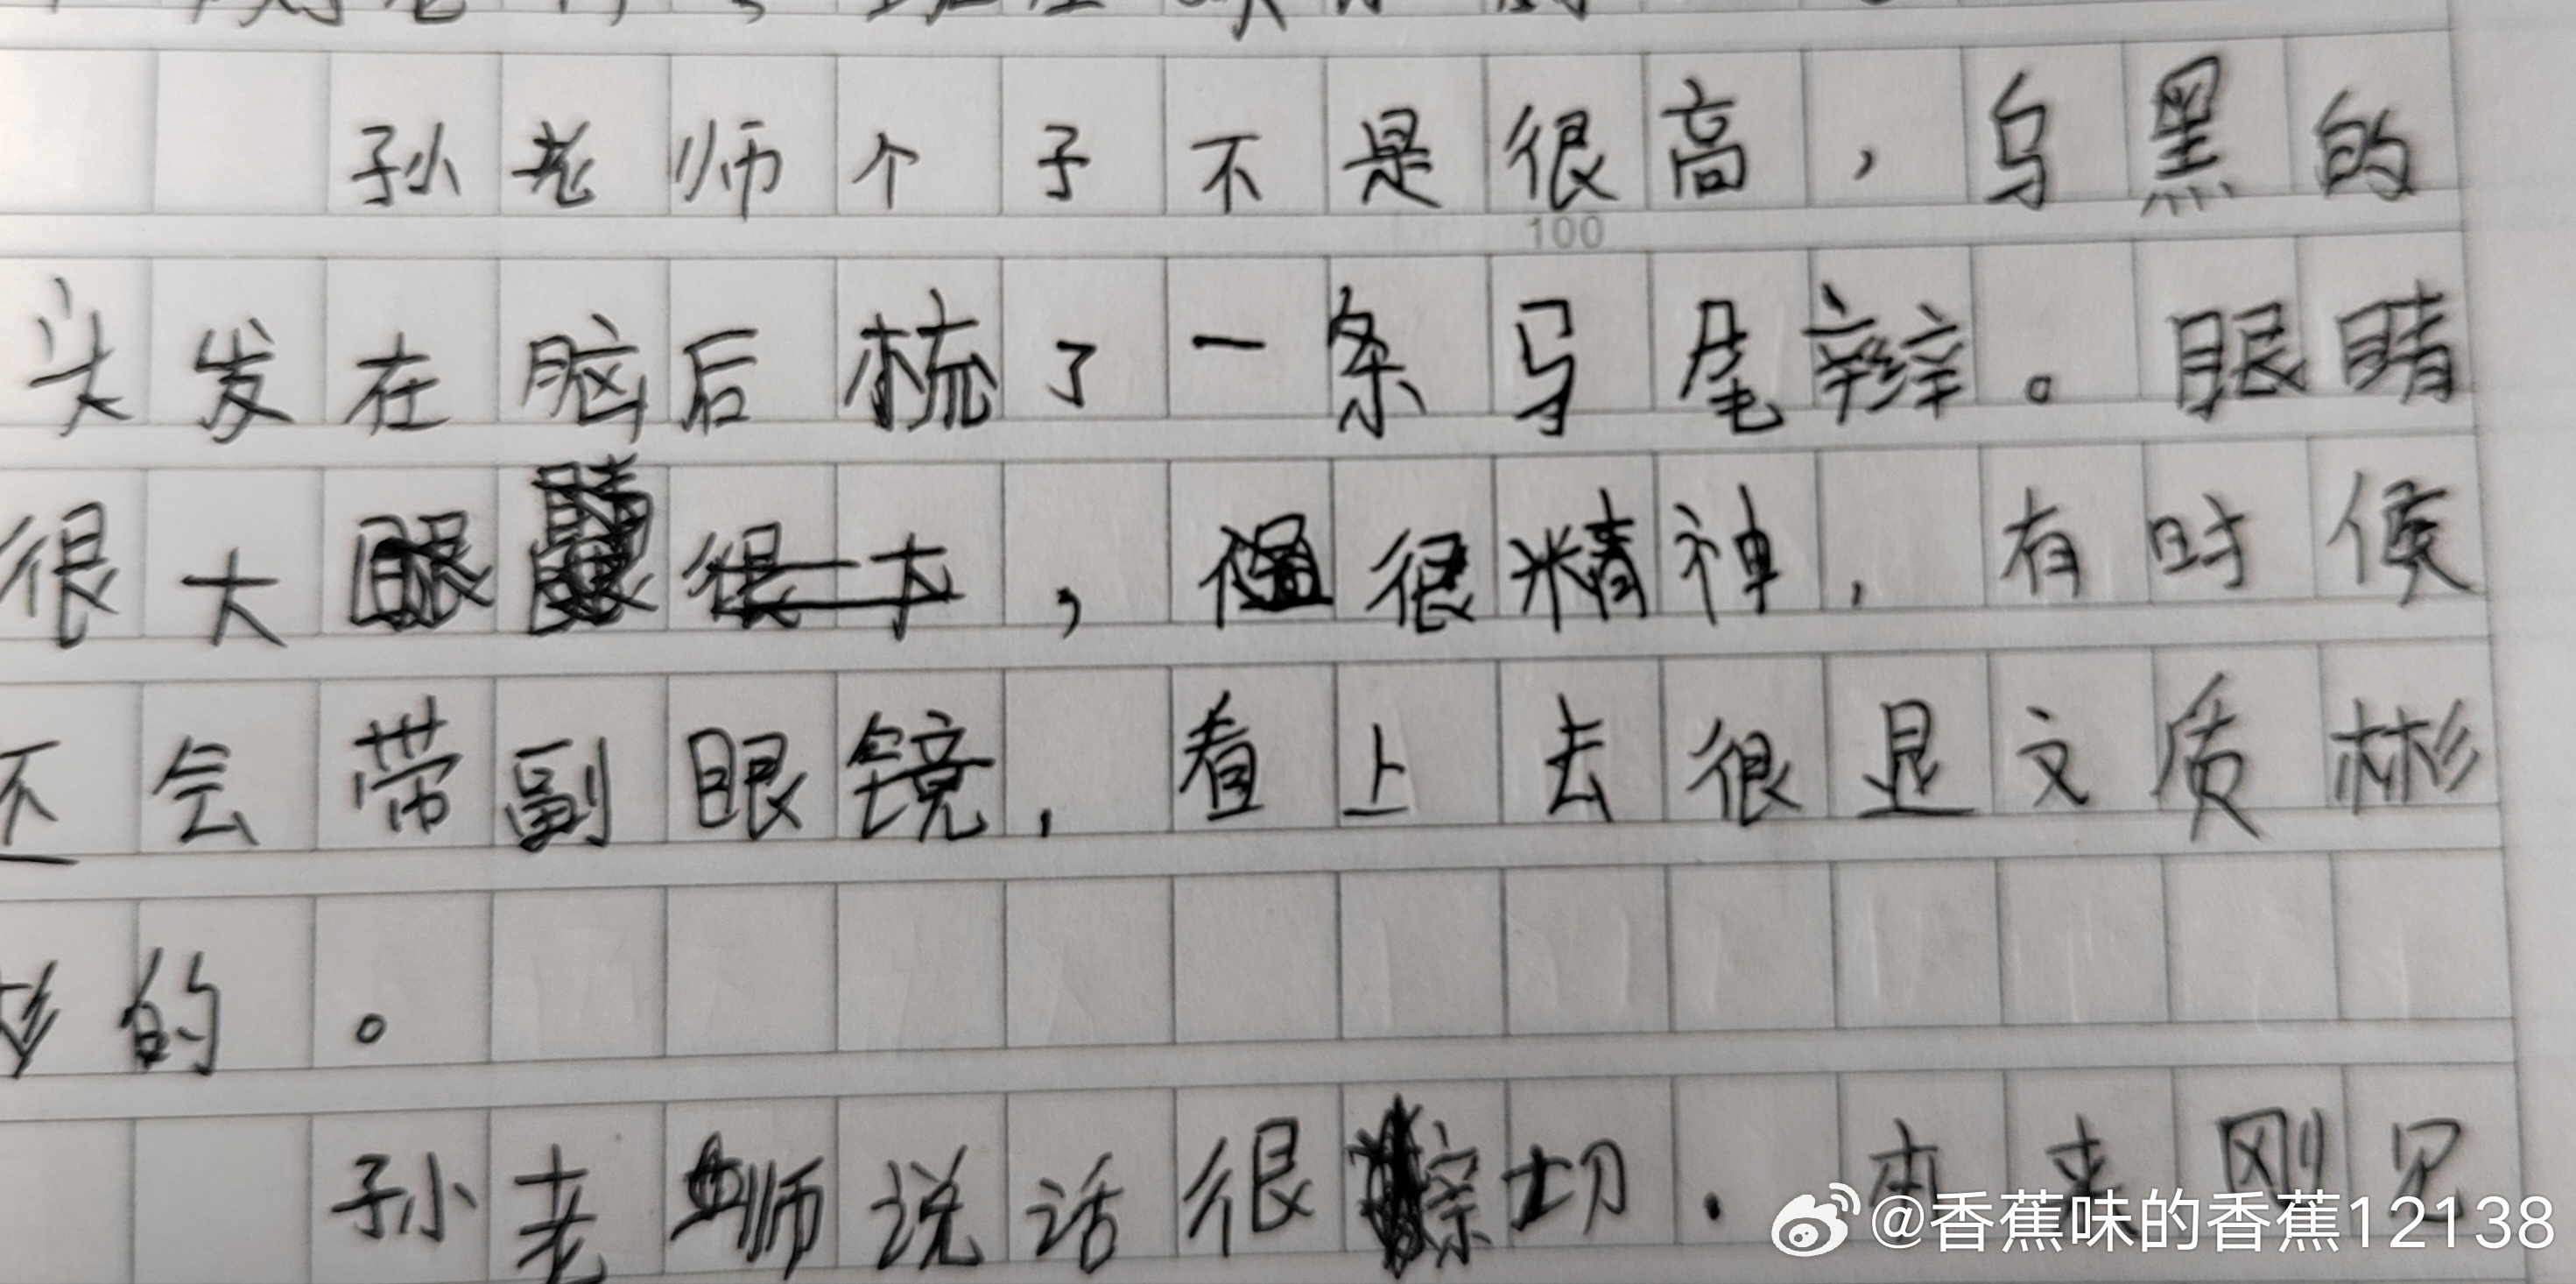 孙老师个子不是很高，乌黑的
100
头发在脑后梳了一条马尾辫。眼睛
很大，很精神，有时候
还会带副眼镜，看上去很显文质彬
彬的。
孙老师说话很切.本来刚见
@香蕉味的香蕉12138